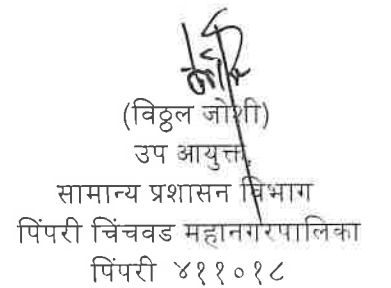 (विठ्ठल जोशी)
उप आयुक्त,
सामान्य प्रशासन विभाग
पिंपरी चिंचवड महानगरपालिका
पिंपरी ४११०१८